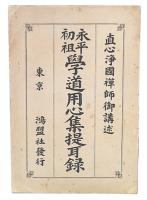 直心淨國禪師御講述
永平初祖學道用心集提耳録
東京　鴻盟社發行